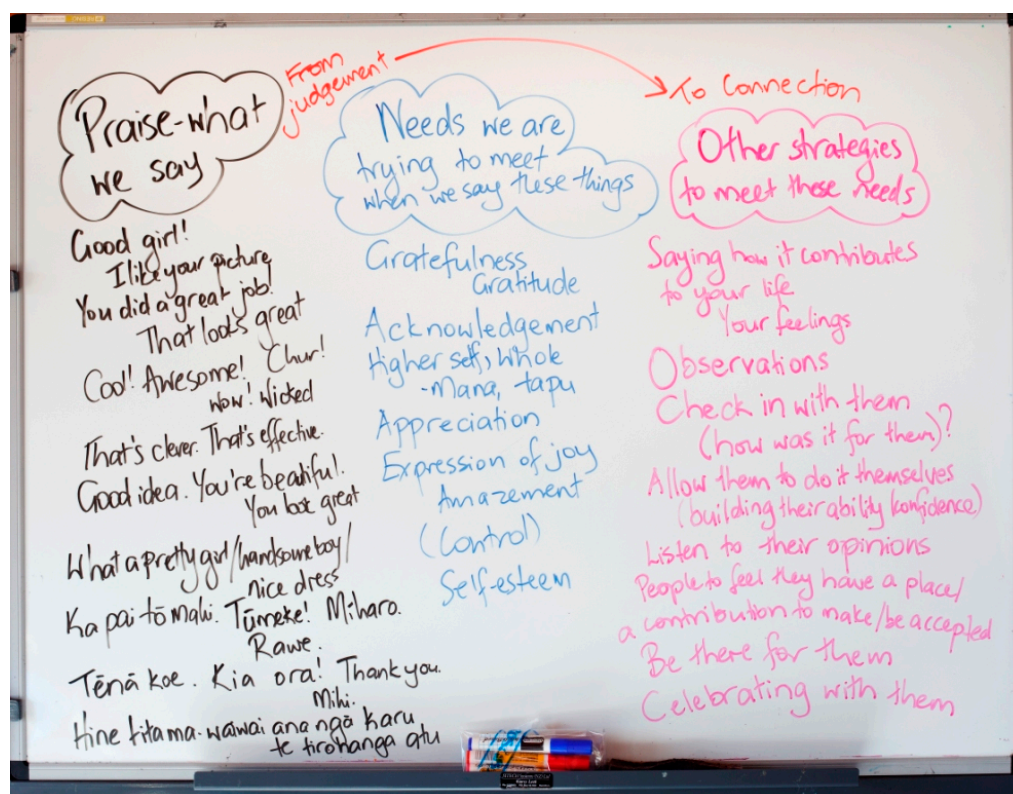 From
judgement
To Connection
Praise-what
we say
Good girl!
I like your picture
You did a great job!
That looks great
Cool! Awesome! Chur!
Wow! Wicked
That's clever. That's effective.
Good idea. You're beautiful.
You look great
What a pretty girl/handsome boy/
nice dress
Ka pai tō mahi. Tūmeke! Mīharo.
Rawe.
Tēnā koe. Kia ora! Thank you.
Mihi.
Hine titama-wāwai ana ngā karu
te tirohanga atu
Needs we are
trying to meet
when we say these things
Gratefulness
Gratitude
Acknowledgement
Higher self, Whole
-Mana, tapu
Appreciation
Expression of joy
Amazement
(Control)
Self-esteem
Other strategies
to meet these needs
Saying how it contributes
to your life
Your feelings
Observations
Check in with them
(how was it for them)?
Allow them to do it themselves
(building their ability/confidence)
Listen to their opinions
People to feel they have a place/
a contribution to make/be accepted
Be there for them
Celebrating with them